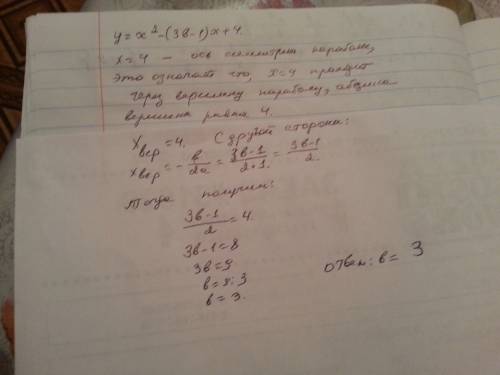 y = x² - (3в-1)x + 4.
x = 4 - ось симметрии параболы,
Это означает что, x=4 проходит
через вершину параболы, абцисса
вершины равна 4.
Xвер = 4. С другой стороны:
Xвер = - в/2a = 3в-1/2·1 = 3в-1/2.
Тогда получим:
3в-1/2 = 4.
3в-1 = 8
3в = 9
в = 9:3
в = 3.
ответ: в = 3